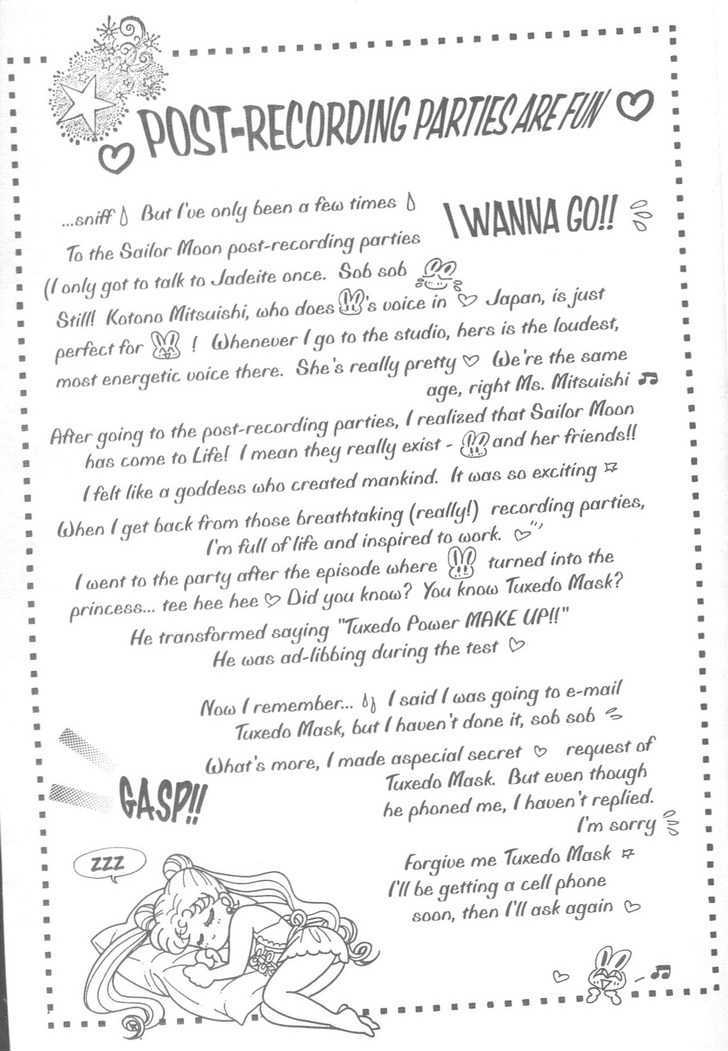 POST-RECORDING PARTIES ARE FUN
...sniff But I've only been a few times
I WANNA GO!!
To the Sailor Moon post-recording parties
(I only got to talk to Jadeite once. Sob sob
Still! Kotono Mitsuishi, who does 's voice in Japan, is just
perfect for ! Whenever I go to the studio, hers is the loudest,
most energetic voice there. She's really pretty We're the same
age, right Ms. Mitsuishi
After going to the post-recording parties, I realized that Sailor Moon
has come to Life! I mean they really exist - and her friends!!
I felt like a goddess who created mankind. It was so exciting
When I get back from those breathtaking (really!) recording parties,
I'm full of life and inspired to work.
I went to the party after the episode where turned into the
princess... tee hee hee Did you know? You know Tuxedo Mask?
He transformed saying "Tuxedo Power MAKE UP!!"
He was ad-libbing during the test
Now I remember... I said I was going to e-mail
Tuxedo Mask, but I haven't done it, sob sob
What's more, I made aspecial secret request of
Tuxedo Mask. But even though
he phoned me, I haven't replied.
I'm sorry
GASP!!
Forgive me Tuxedo Mask
I'll be getting a cell phone
soon, then I'll ask again
ZZZ